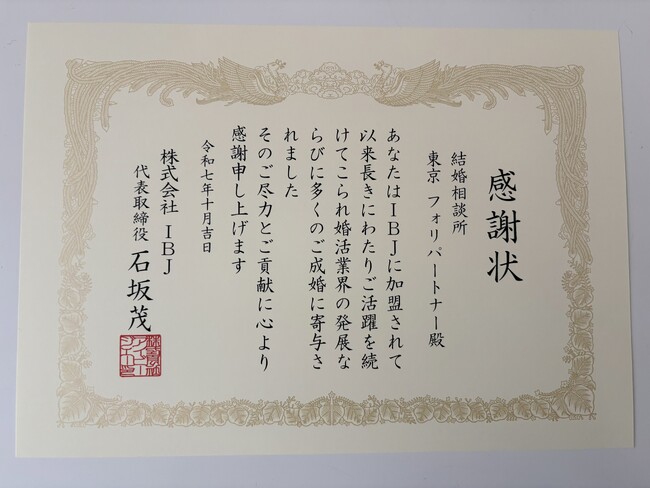 感謝状
結婚相談所
東京 フォリパートナー殿
あなたはＩＢＪに加盟されて
以来長きにわたりご活躍を続
けてこられ婚活業界の発展な
らびに多くのご成婚に寄与さ
れました
そのご尽力とご貢献に心より
感謝申し上げます
令和七年十月吉日
株式会社 ＩＢＪ
代表取締役 石坂茂